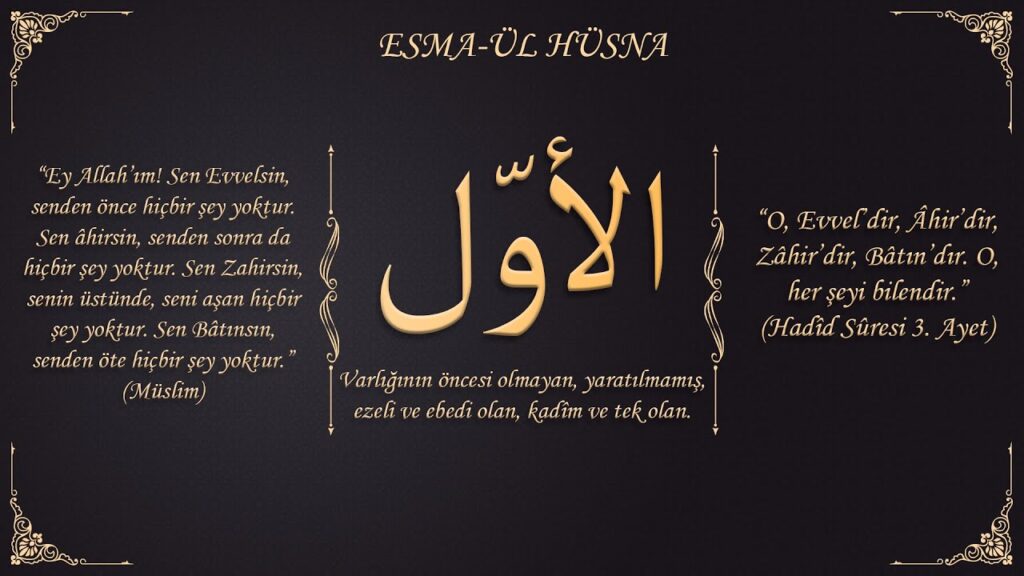 ESMA-ÜL HÜSNA
“Ey Allah’ım! Sen Evvelsin,
senden önce hiçbir şey yoktur.
Sen âhirsin, senden sonra da
hiçbir şey yoktur. Sen Zahirsin,
senin üstünde, seni aşan hiçbir
şey yoktur. Sen Bâtınsın,
senden öte hiçbir şey yoktur.”
(Müslim)
الأوّل
Varlığının öncesi olmayan, yaratılmamış,
ezeli ve ebedi olan, kadîm ve tek olan.
“O, Evvel’dir, Âhir’dir,
Zâhir’dir, Bâtın’dır. O,
her şeyi bilendir.”
(Hadîd Sûresi 3. Ayet)